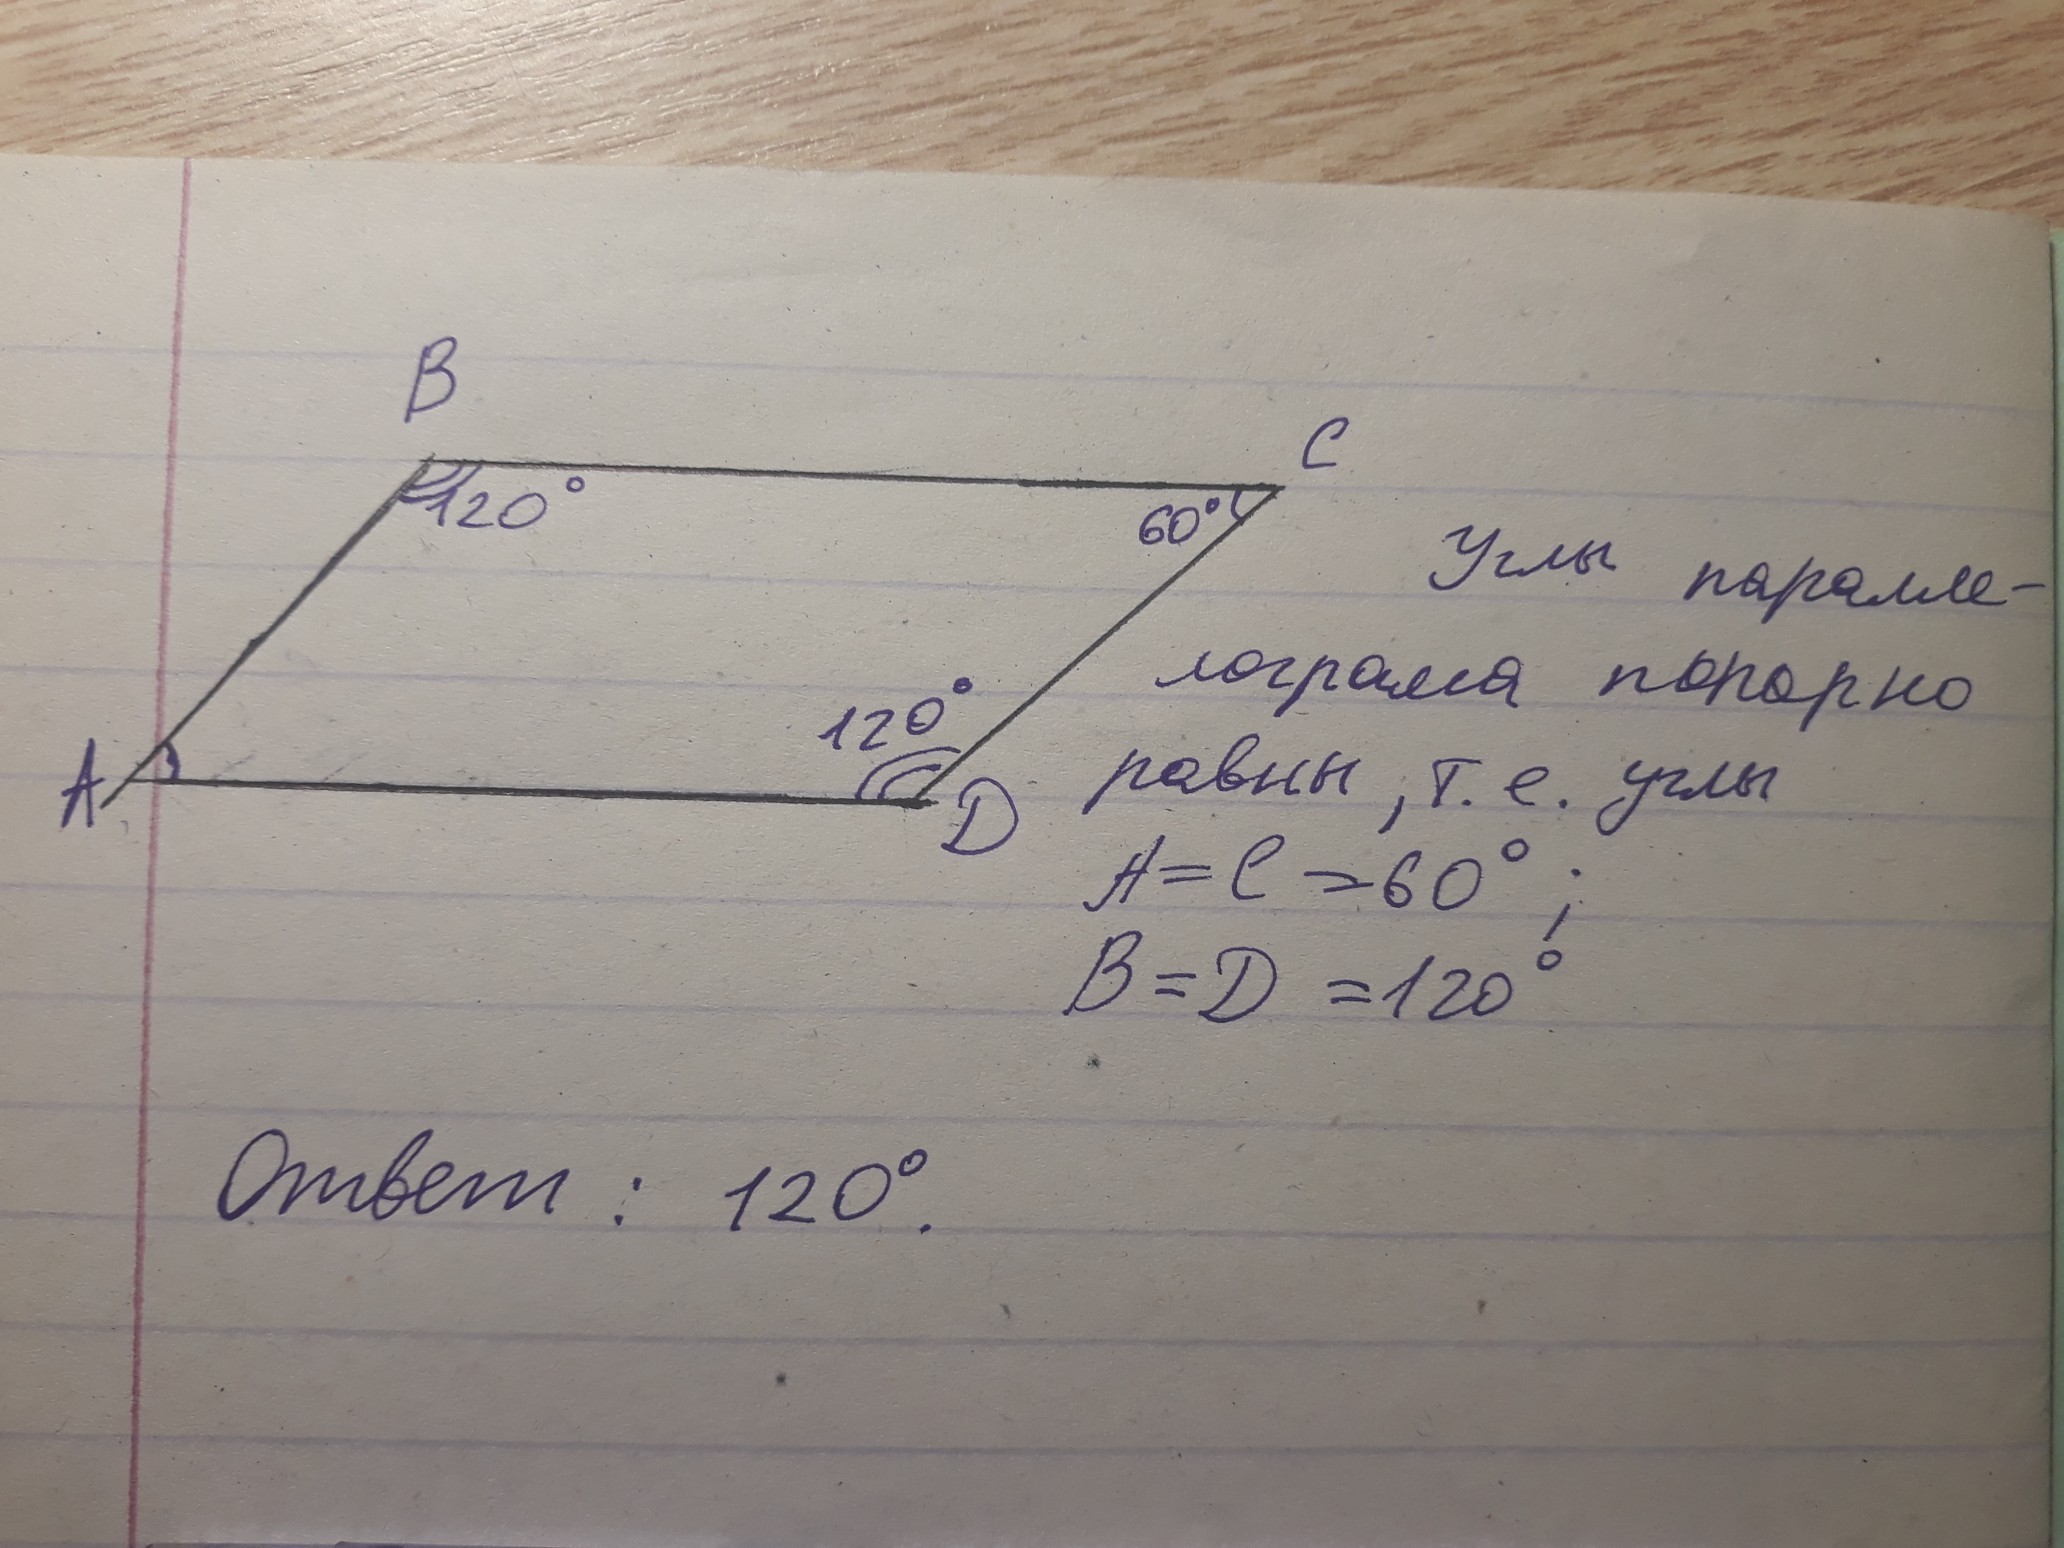 B
C
120°
60°
Углы паралле-
лограма попарно
120°
равны, т.е. углы
A
D
A = C = 60° ;
B = D = 120°
Ответ : 120°.